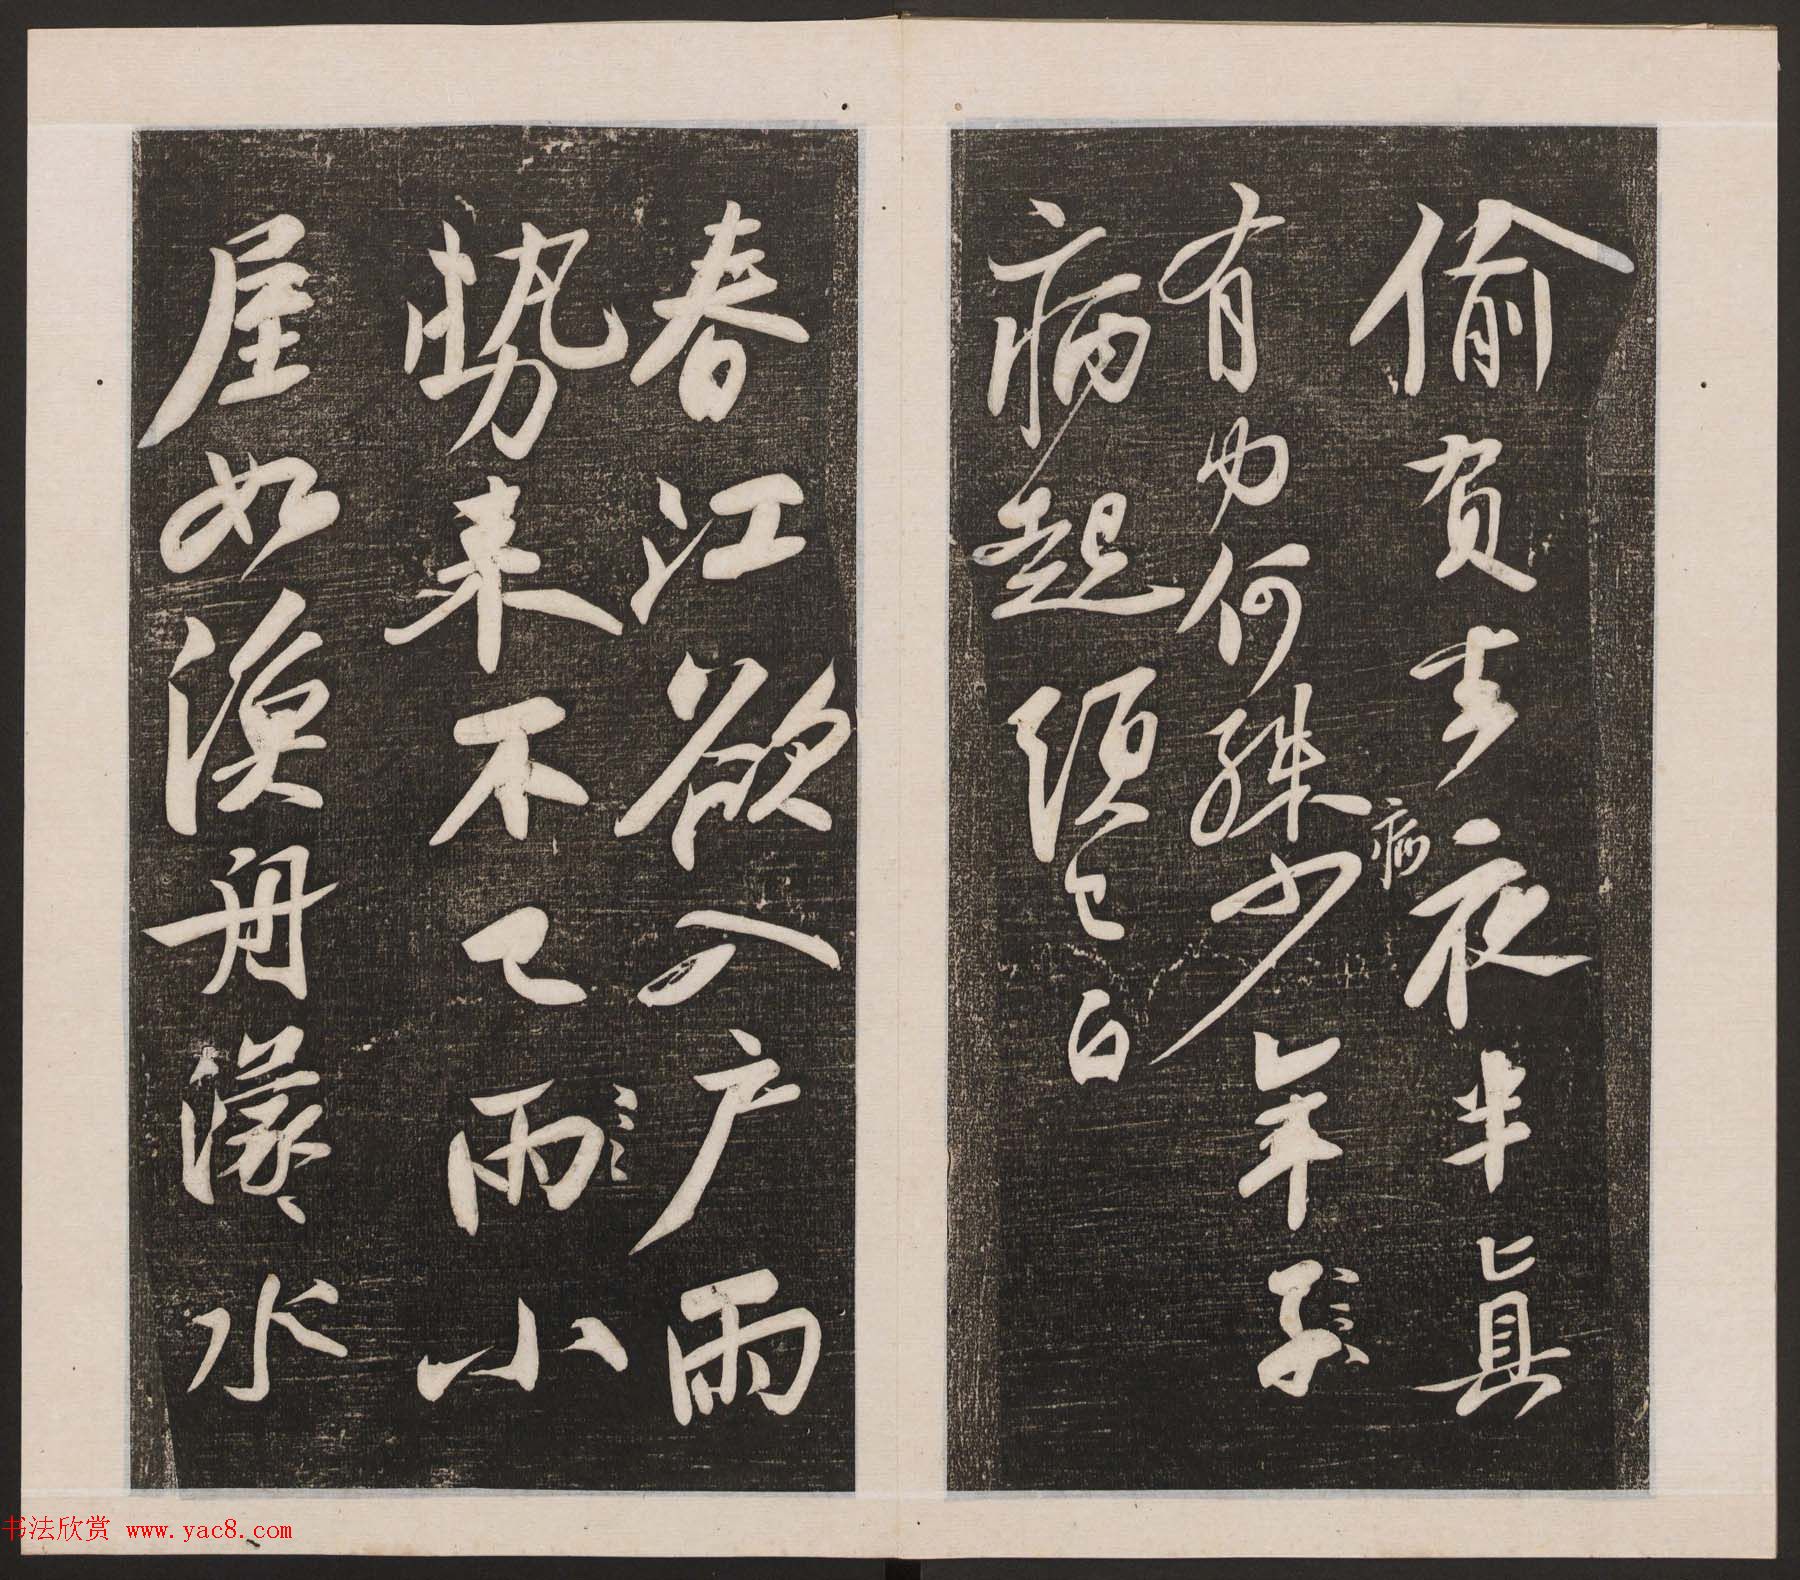 偷負去夜半真
有力何殊病少年子
病起頭已白
春江欲入戶雨
勢來不已雨小
屋如漁舟濛〻水
书法欣赏 www.yac8.com